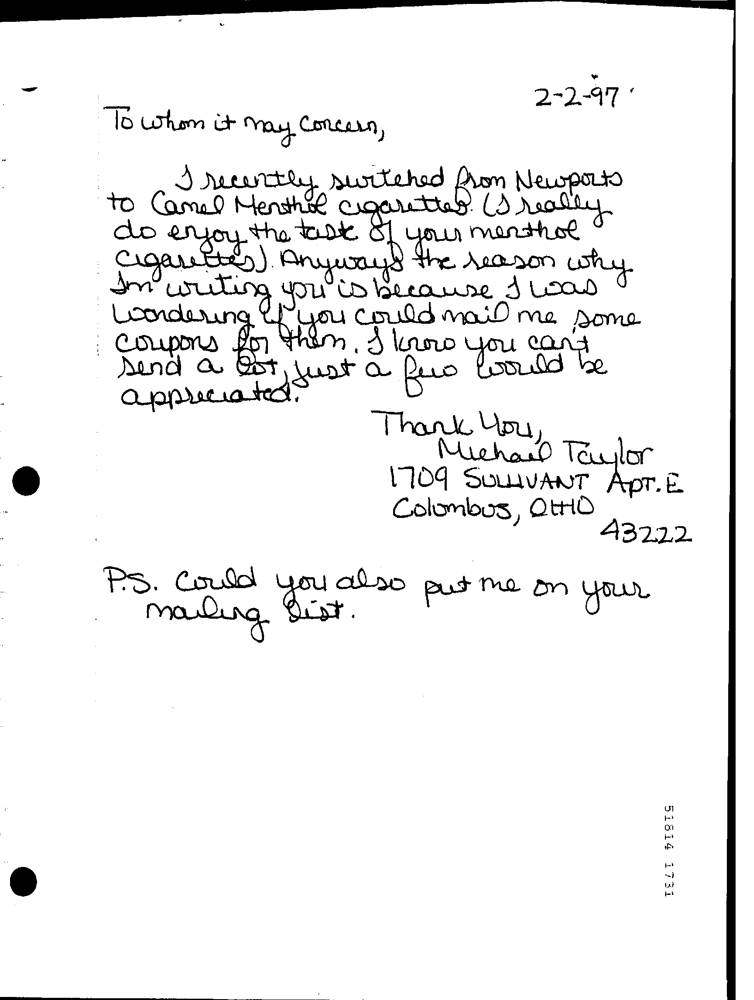 2-2-97
To whom it may concern,
I recently switched from Newports
to Camel Menthol cigarettes. (I really
do enjoy the taste of your menthol
cigarettes). Anyways the reason why
Im writing you is because I was
wondering if you could mail me some
coupons for them. I know you can't
send a lot, just a few would be
appreciated.
Thank You,
Michael Taylor
1709 SULLIVANT APT. E
Columbus, OHIO
43222
P.S. Could you also put me on your
mailing list.
51814 1731